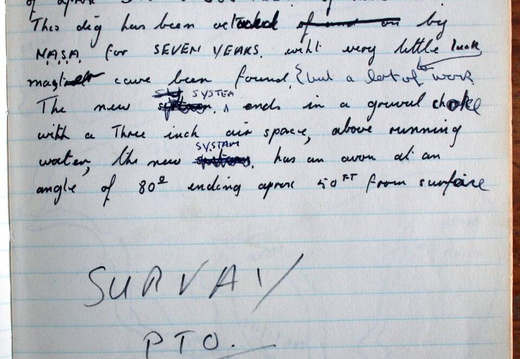 This dig has been by
N.A.S.A. for SEVEN YEARS. with very little luck
cave been found. (but a lot of work
The new SYSTEM ends in a gravel choke
with a Three inch air space, above running
water, the new SYSTAM has an aven at an
angle of 80º ending aprox 50FT from surface
SURVAY
PTO.